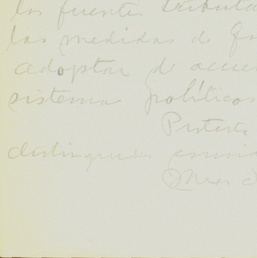 las fuentes tributa
las medidas de
adoptar de acue
sistemas políticos
Protesto
distinguida consi